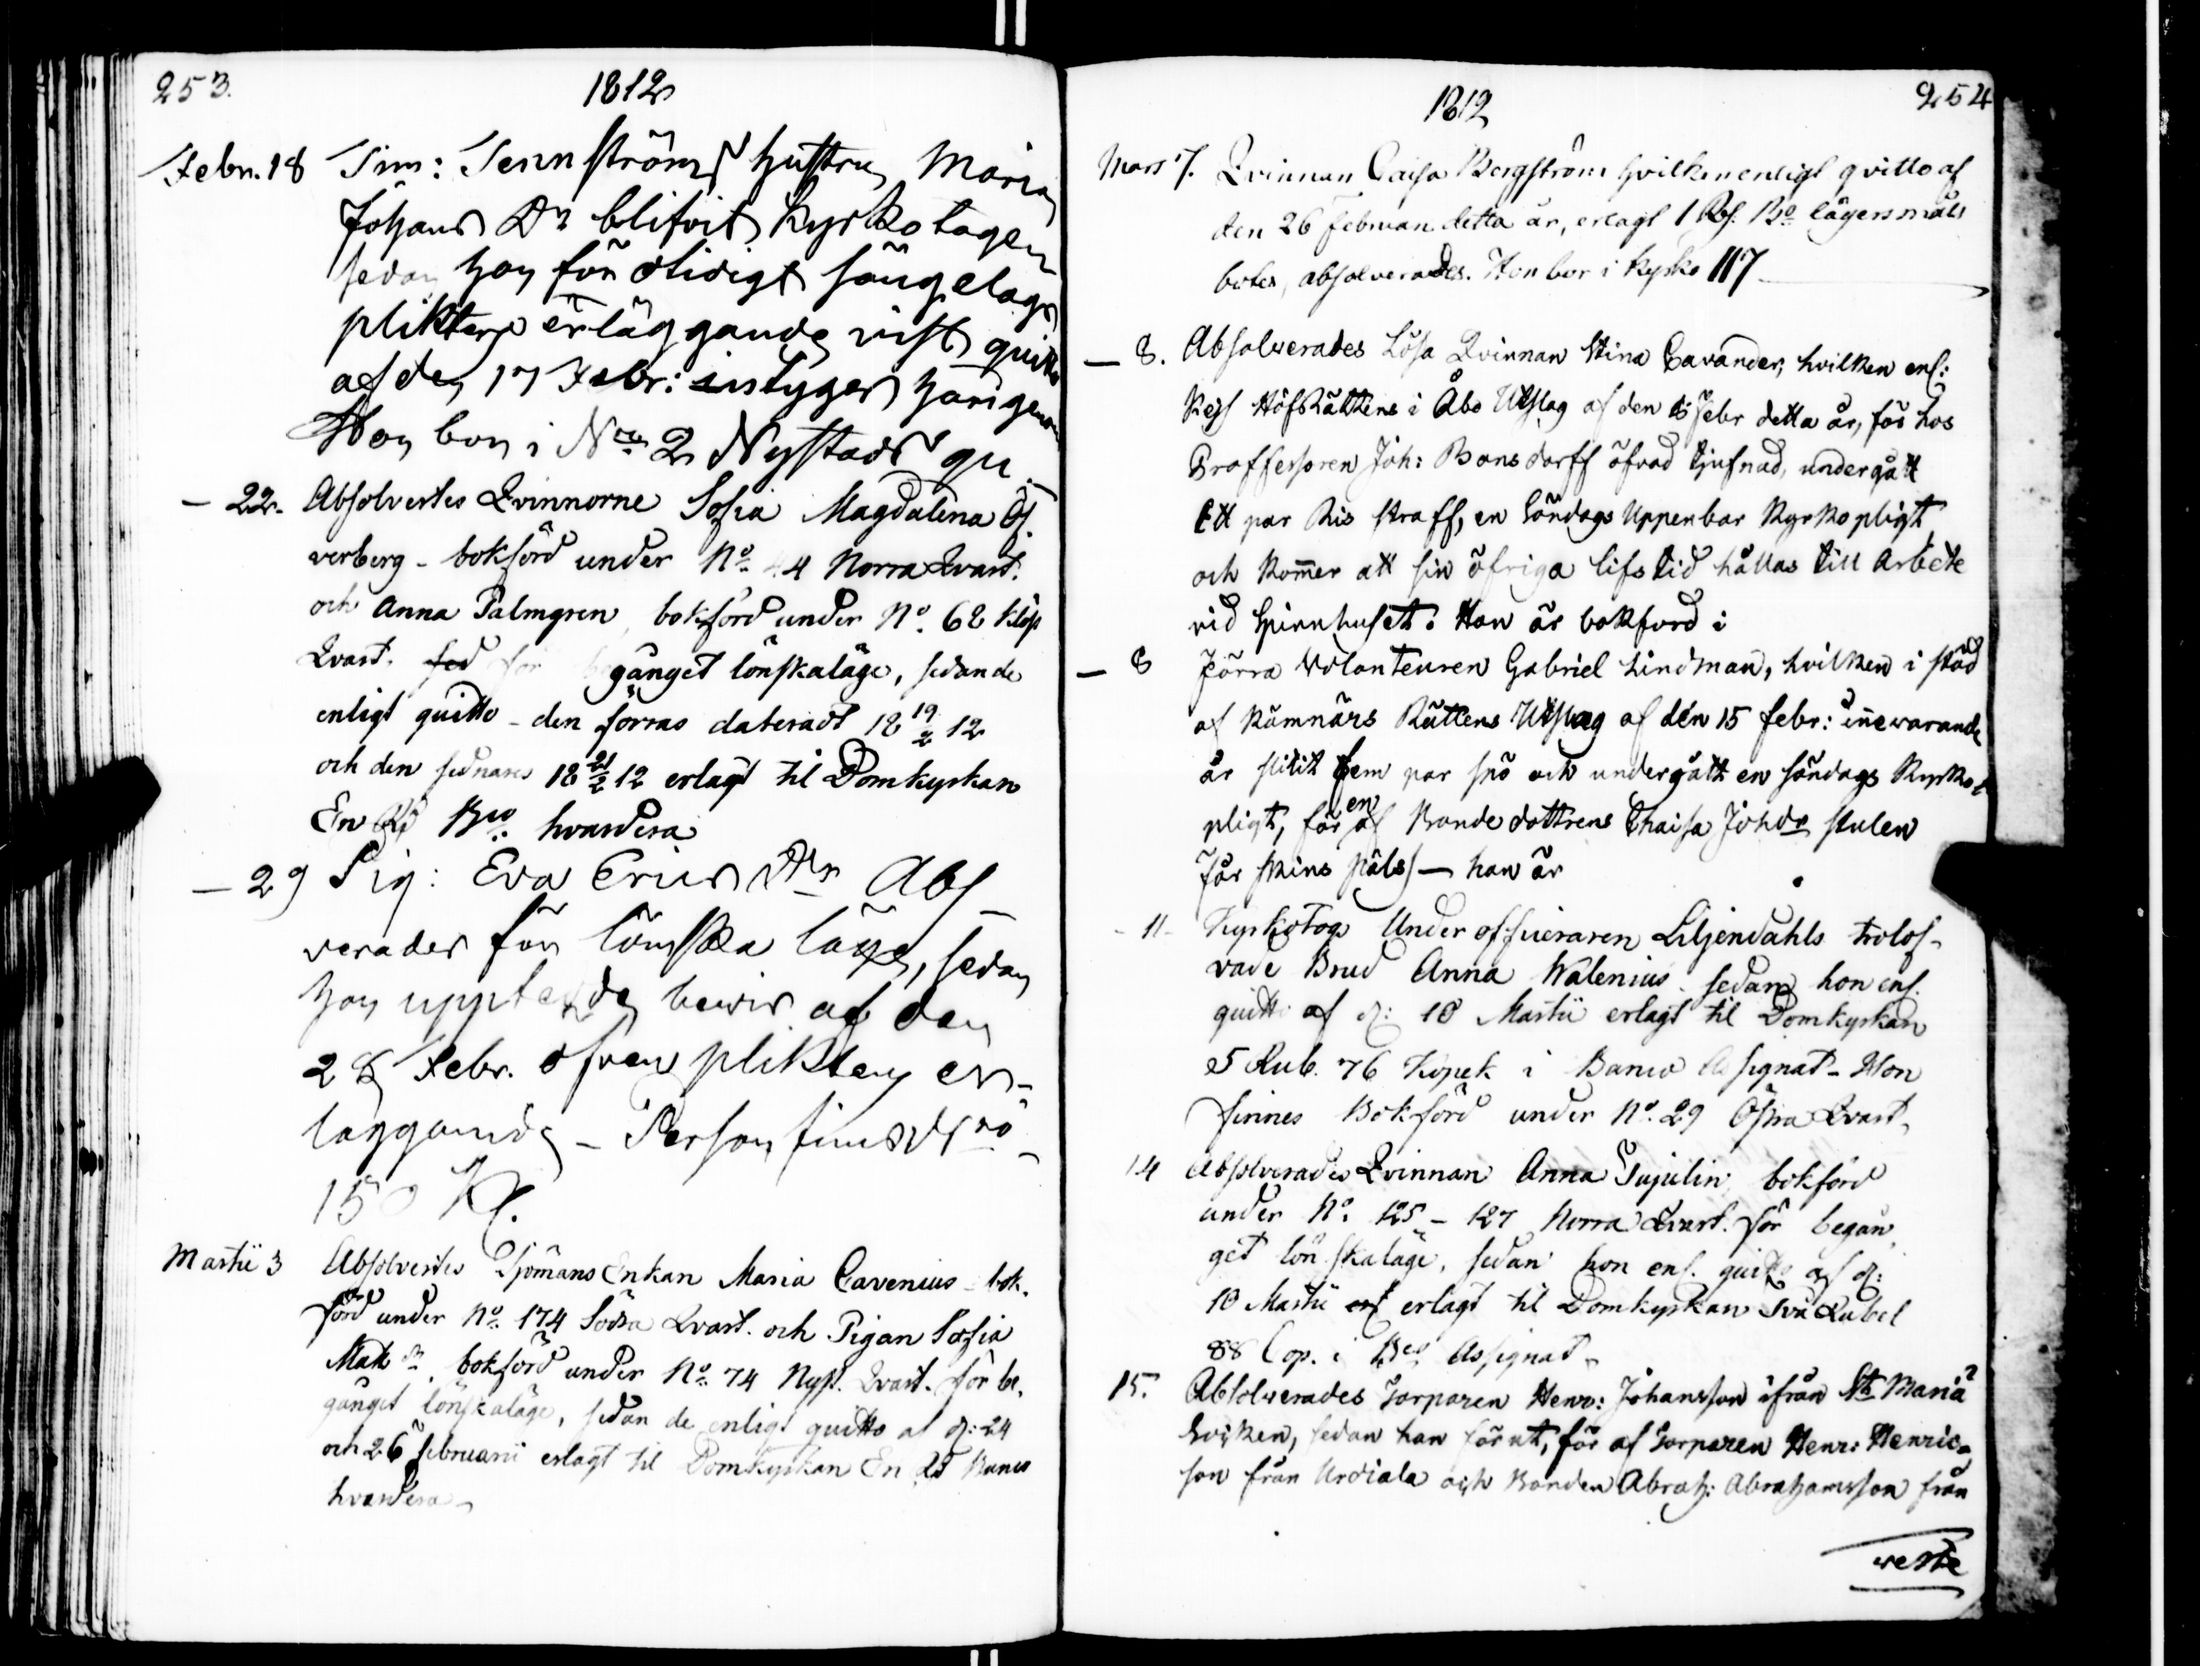 253.
1812
Febr. 18 Tim: Tennströms hustru Maria
Johans Dr blifvit kyrkotagen
sedan hon för otidigt sängelags
plikters erläggande vist quitto
af den 17 Febr: sistyges härigenom
Hon bor i Nro 2 Nystads qu.
— 22. Absolvertes Qvinnorne Sofia Magdalena Öf-
verberg - bokförd under No 44 Norra Qvart.
och Anna Palmgren, bokförd under No. 62 Klost
Qvart. för begånget lönskaläge, sedan de
enligt quitto - den förras dateradt 18 19/2 12
och den sednares 18 21/2 12 erlagt til Domkyrkan
En Rd Bco. hvardera
— 29 Pig: Eva Erics Dr Abs-
verades för lönska läge, sedan
hon uppteedde bevis af den
28 Febr. ofvan plikten er-
läggande - Person fins No
150 Kl.
Martii 3 Absolvertes Sjömans Enkan Maria Cavenius - bok-
förd under No. 174 Södra Qvart. och Pigan Sofia
Mats dr bokförd under No. 74 Nyst. Qvart. för be-
gånget lönskaläge, sedan de enligt quitto af d: 24
och 26 februarii erlagt til Domkyrkan En Rd Banco
hvardera
1812
254
Mars 7. Qvinnan Caisa Bergström hvilken enligt qvitto af
den 26 februari detta år, erlagt 1 Rd. Bo lägersmåls
böter, absolverades. Hon bor i kyrko 117
— 8. Absolverades Lösa Qvinnan Stina Cavander, hvilken enl:
Kejs Hofrättens i Åbo Utslag af den Febr detta år, för hos
Proffessoren Joh: Bonsdorff öfvad tjufnad, undergått
Ett par Ris straff, en Söndags Uppenbar Kyrkopligt
och kom̄er att sin öfriga lifstid hållas till Arbete
vid Spinnhuset. Hon är bokförd i
— 8 Förra Volonteuren Gabriel Lindman, hvilken i stöd
af Kämnärs Rättens Utslag af den 15 febr: in̄ewarande
år slitit fem par spö och undergått en söndags Kyrko
pligt, för en af Bonde dottrens Chaisa Johdr stulen
Får skins päls — han är
- 11 - Kyrkotogs Under officeraren Liljendahls trolof-
vade Brud Anna Walenius. sedan hon enl.
quitto af d: 10 Martii erlagt til Domkyrkan
5 Rub. 76 Kopek i Banco Assignat - Hon
finnes Bokförd under No. 29 Östra Qvart.
14 Absolverades Qvinnan Anna Tujulin, bokförd
under No. 125 - 127 Norra Qvart. för begån-
get lönskaläge, sedan hon enl. quitto af d:
10 Martii erlagt til Domkyrkan Två Rubel
88 Cop. i Bco Assignat
15. Absolverades Torparen Henr: Johansson ifrån St Mariæ
Socken, sedan han förut, för af Torparen Henr: Henrics-
son från Urdiala och Bonden Abrah: Abrahamsson från